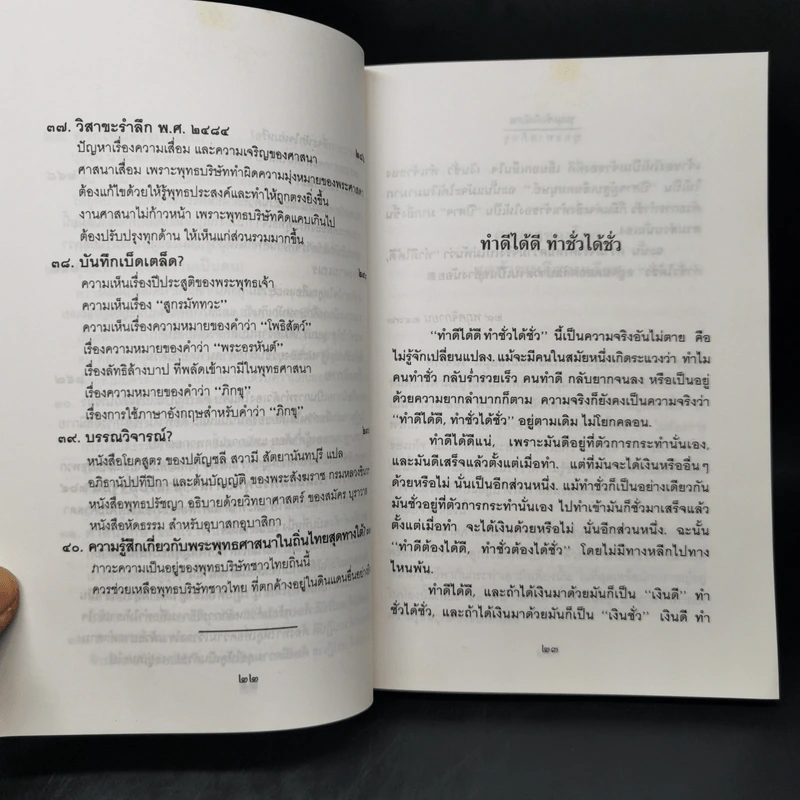 ๓๗. วิสาขะรำลึก พ.ศ. ๒๔๘๔
ปัญหาเรื่องความเสื่อม และความเจริญของศาสนา
ศาสนาเสื่อม เพราะพุทธบริษัททำผิดความมุ่งหมายของพระศาสดา
ต้องแก้ไขด้วยให้รู้พุทธประสงค์และทำให้ถูกตรงยิ่งขึ้น
งานศาสนาไม่ก้าวหน้า เพราะพุทธบริษัทคิดแคบเกินไป
ต้องปรับปรุงทุกด้าน ให้เห็นแก่ส่วนรวมมากขึ้น
๓๘. บันทึกเบ็ดเตล็ด?
ความเห็นเรื่องปีประสูติของพระพุทธเจ้า
ความเห็นเรื่อง “สูกรมัททวะ”
ความเห็นเรื่องความหมายของคำว่า “โพธิสัตว์”
เรื่องความหมายของคำว่า “พระอรหันต์”
เรื่องลัทธิล้างบาป ที่พลัดเข้ามามีในพุทธศาสนา
เรื่องความหมายของคำว่า “ภิกขุ”
เรื่องการใช้ภาษาอังกฤษสำหรับคำว่า “ภิกขุ”
๓๙. บรรณวิจารณ์?
หนังสือโยคสูตร ของปตัญชลี สวามี สัตยานันทบุรี แปล
อภิธานัปปทีปิกา และต้นบัญญัติ ของพระสังฆราช กรมหลวงชินวร
หนังสือพุทธปรัชญา อธิบายด้วยวิทยาศาสตร์ ของสมัคร บุราวาศ
หนังสือหัดธรรม สำหรับอุบาสกอุบาสิกา
๔๐. ความรู้สึกเกี่ยวกับพระพุทธศาสนาในถิ่นไทยสุดทางใต้?
ภาวะความเป็นอยู่ของพุทธบริษัทชาวไทยถิ่นนี้
ควรช่วยเหลือพุทธบริษัทชาวไทย ที่ตกค้างอยู่ในดินแดนอื่นอย่างไร
๒๒
ทำดีได้ดี ทำชั่วได้ชั่ว
“ทำดีได้ดี ทำชั่วได้ชั่ว” นี้เป็นความจริงอันไม่ตาย คือ
ไม่รู้จักเปลี่ยนแปลง. แม้จะมีคนในสมัยหนึ่งเกิดระแวงว่า ทำไม
คนทำชั่ว กลับร่ำรวยเร็ว คนทำดี กลับยากจนลง หรือเป็นอยู่
ด้วยความยากลำบากก็ตาม ความจริงก็ยังคงเป็นความจริงว่า
“ทำดีได้ดี, ทำชั่วได้ชั่ว” อยู่ตามเดิม ไม่โยกคลอน.
ทำดีได้ดีแน่, เพราะมันดีอยู่ที่ตัวการกระทำนั่นเอง,
และมันดีเสร็จแล้วตั้งแต่เมื่อทำ. แต่ที่มันจะได้เงินหรืออื่นๆ
ด้วยหรือไม่ นั่นเป็นอีกส่วนหนึ่ง. แม้ทำชั่วก็เป็นอย่างเดียวกัน
มันชั่วอยู่ที่ตัวการกระทำนั่นเอง ไปทำเข้ามันก็ชั่วมาเสร็จแล้ว
ตั้งแต่เมื่อทำ จะได้เงินด้วยหรือไม่ นั่นอีกส่วนหนึ่ง. ฉะนั้น
“ทำดีต้องได้ดี, ทำชั่วต้องได้ชั่ว” โดยไม่มีทางหลีกไปทาง
ไหนพ้น.
ทำดีได้ดี, และถ้าได้เงินมาด้วยมันก็เป็น “เงินดี” ทำ
ชั่วได้ชั่ว, และถ้าได้เงินมาด้วยมันก็เป็น “เงินชั่ว” เงินดี ทำ
๒๓